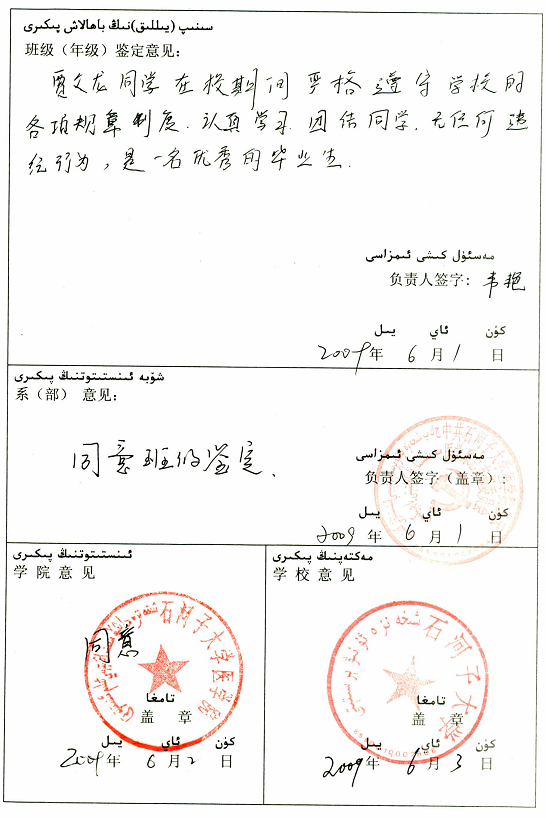 سىنىپ (يىللىق)نىڭ باھالاش پىكىرى
班级（年级）鉴定意见：
贾文龙同学在校期间严格遵守学校的
各项规章制度．认真学习．团结同学．无任何违
纪行为，是一名优秀的毕业生．
مەسئۇل كىشى ئىمزاسى
负责人签字：韦艳
كۈن ئاي يىل
2009年 6月1日
شۆبە ئىنستىتوتنىڭ پىكىرى
系（部）意见：
同意班级鉴定．
مەسئۇل كىشى ئىمزاسى
负责人签字（盖章）：
كۈن ئاي يىل
2009年 6月1日
ئىنستىتوتنىڭ پىكىرى
学院意见
石河子大学医学院
同意
تامغا
盖 章
كۈن ئاي يىل
2009年 6月2日
مەكتەپنىڭ پىكىرى
学校意见
شىخەنزە ئۇنىۋېرسىتېتى
石河子大学
تامغا
盖 章
كۈن ئاي يىل
2009年 6月3日